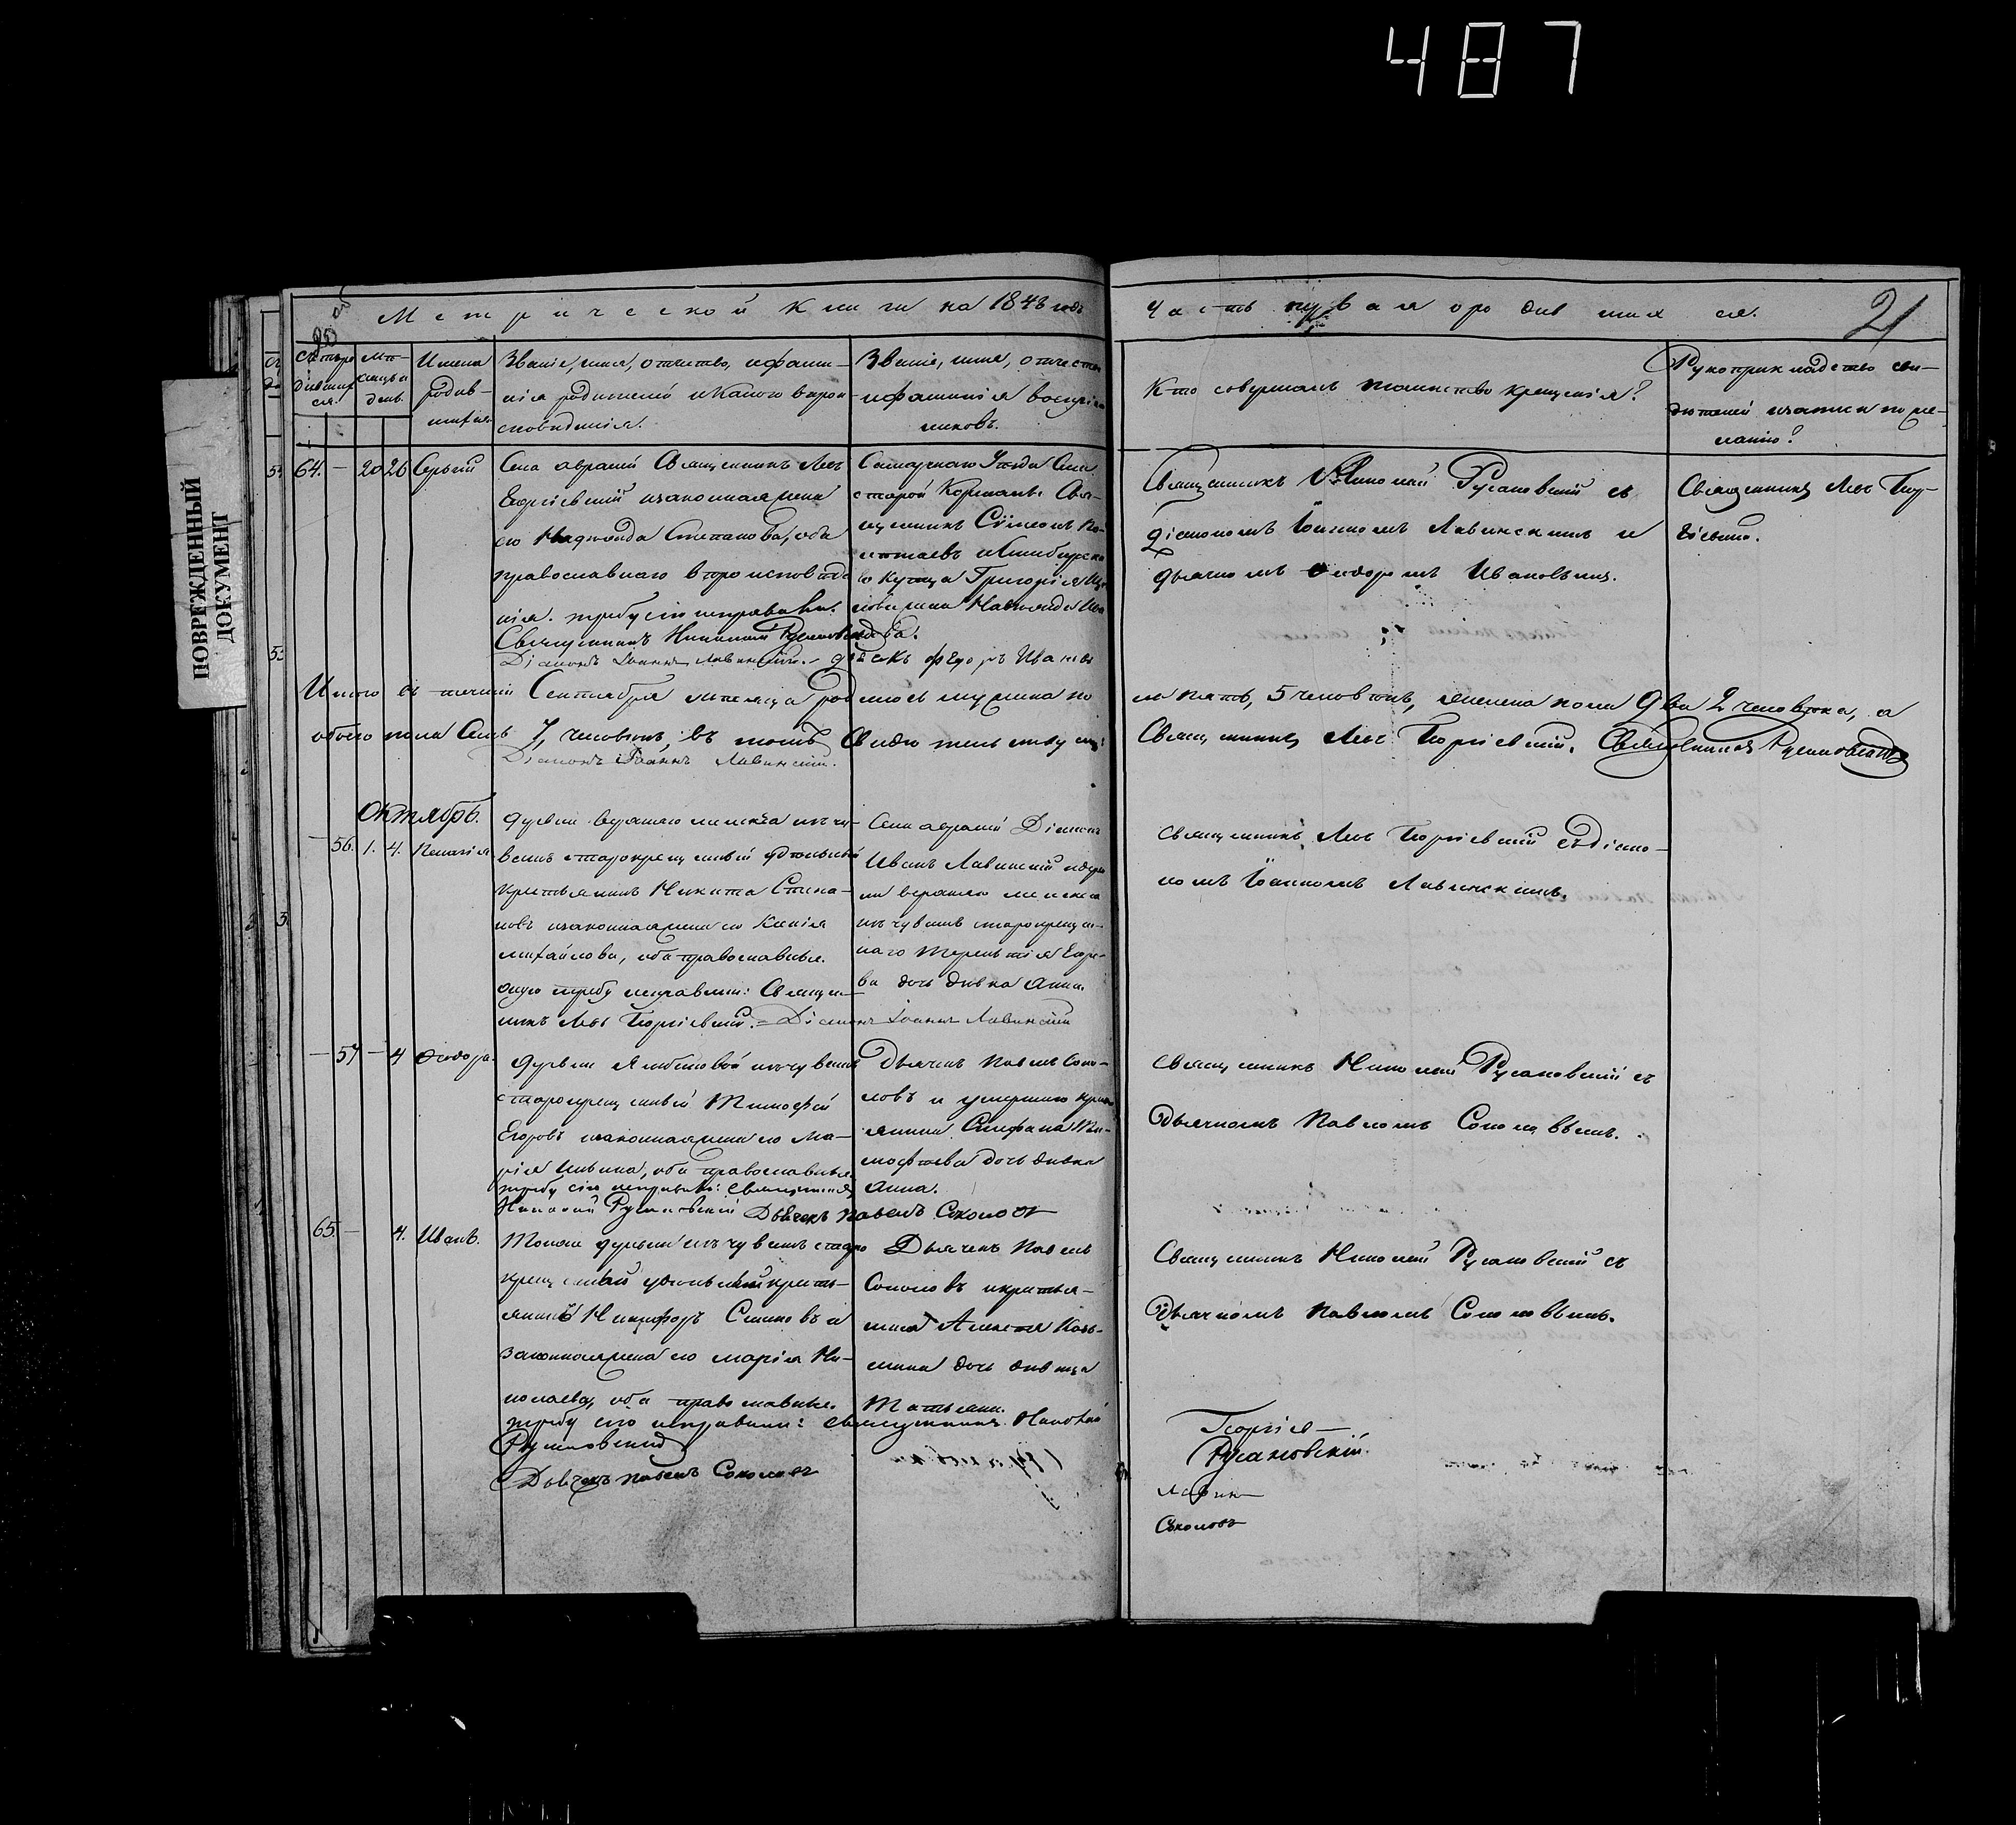 487
ПОВРЕЖДЕННЫЙ
ДОКУМЕНТ
Метрической Книги на 1848 годъ
Часть первая о родившихся.
21
Имена
родив-
шихся
Званіе, имя, отчество, и фами-
лія родителей и какого вѣрои-
сповѣданія.
Званіе, имя, отчество
и фамилія воспріем-
никовъ.
Кто совершалъ таинство крещенія?
Рукоприкладство сви-
дѣтелей записи по же-
ланію?
64. — 20 26 Сергій
Села Авралей Священникъ Левъ
Георгіевскій и законная жена
его Надежда Степанова, оба
православнаго вѣроисповѣда-
нія. требу сію исправляли.
Священникъ Николай Русановскій
Діаконъ Іоаннъ Лавинскій. дьячекъ Федоръ Ивановъ
Самарскаго Уѣзда Села
старой
Священникъ Сѵмеонъ
купца Григорія
Священникъ Николай Русановскій съ
діакономъ Іоанномъ Лавинскимъ и
дьячкомъ Ѳедоромъ Ивановымъ.
Священникъ Левъ Геор-
гіевскій.
Итого въ теченіи Сентября мѣсяца родилось мужеска по-
ла пять, 5 человѣкъ, женска пола два 2 человѣка, а
обоего пола Семь 7, человѣкъ, въ томъ свидѣтельствуемъ:
Священникъ Левъ Георгіевскій. Священникъ Русановскій
Діаконъ Іоаннъ Лавинскій.
Октябрь.
— 56. 1. 4. Пелагія
деревни верхняго изъ чу-
вашъ старокрещенный удѣльный
крестьянинъ Никита Степа-
новъ и законная жена его Ксенія
михайлова, оба православные.
оную требу исправляли: Священ-
никъ Левъ Георгіевскій. Діаконъ Іоаннъ Лавинскій
Села авралей Діаконъ
Иванъ Лавинскій и дерев-
ни верхняго
изъ чувашъ старокрещен-
наго Терентія Егоро-
ва дочь дѣвка Анна.
Священникъ Левъ Георгіевскій съ діако-
номъ Іоанномъ Лавинскимъ.
— 57 — 4 Ѳеодора.
деревни изъ чувашъ
старокрещенный Тимофей
Егоровъ и законная жена его Ма-
рія Ильина, оба православные.
требу сію исправляли: Священникъ
Николай Русановскій Дьячекъ Павелъ Соколовъ
Дьячекъ Павелъ Соко-
ловъ и умершаго кресть-
янина Стефана Ти-
мофеева дочь дѣвка
Анна.
Священникъ Николай Русановскій съ
Дьячкомъ Павломъ Соколовымъ.
65. — 4. Иванъ.
Тояже деревни изъ чувашъ старо
крещенный удѣльный кресть-
янинъ Никифоръ Семеновъ и
законная жена его Марія Ни-
колаева, оба православные.
требу сію исправляли: Священникъ Николай
Русановскій
Дьячекъ Павелъ Соколовъ
Дьячекъ Павелъ
Соколовъ и кресть-
янина Алексея Козь-
мина дочь дѣвица
Татьяна.
Священникъ Николай Русановскій съ
Дьячкомъ Павломъ Соколовымъ.
Георгіев—
Русановскій.
Лавин—
Соколовъ